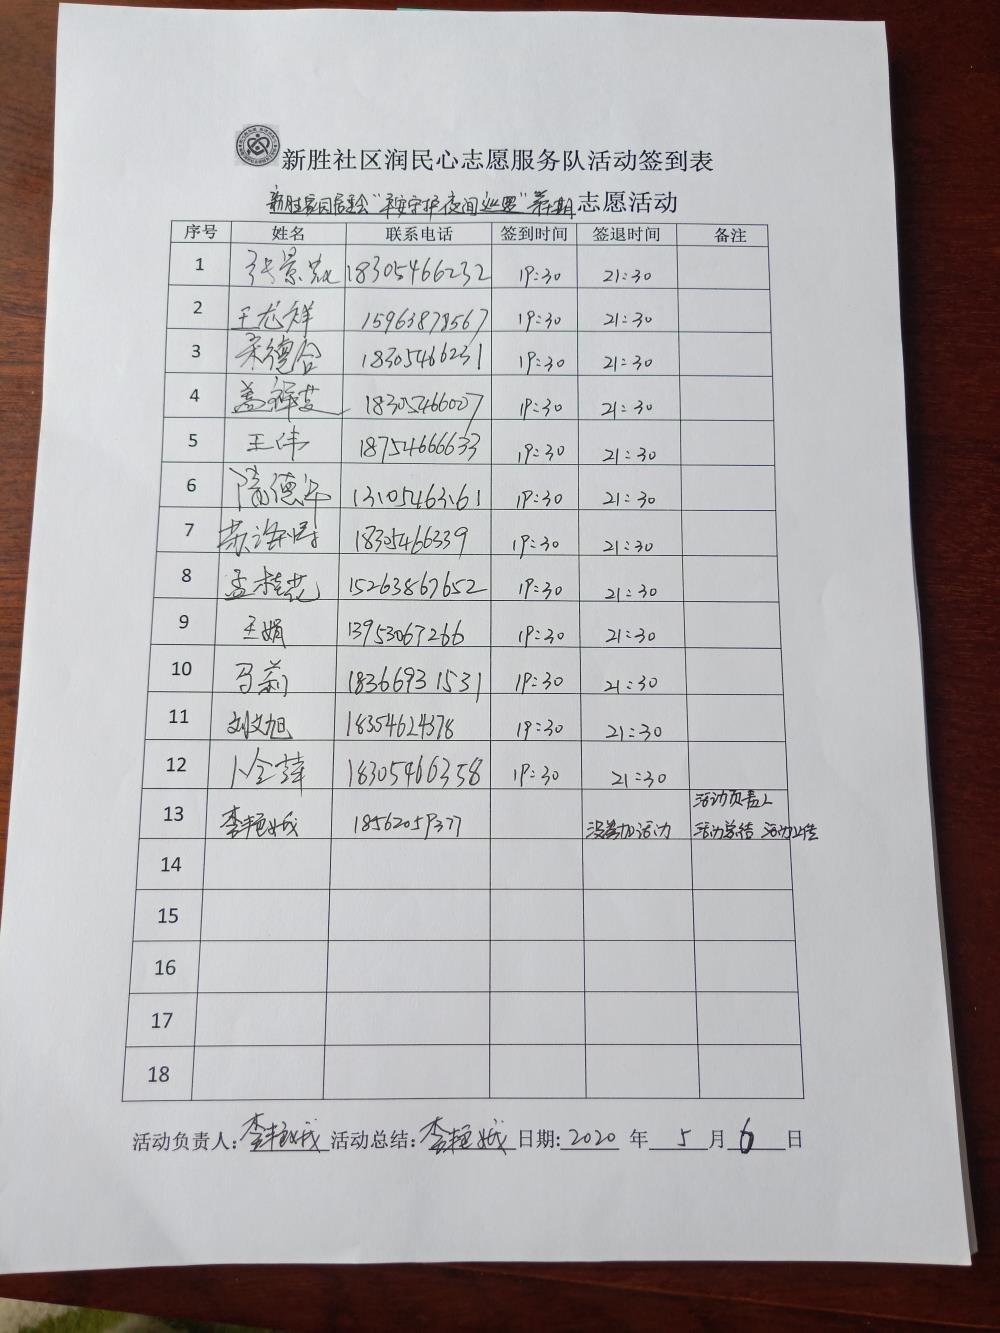 新胜社区润民心志愿服务队活动签到表
新胜家园居委会“平安守护夜间巡逻”第十期志愿活动
序号 姓名 联系电话 签到时间 签退时间 备注
1 张景 18305466232 19:30 21:30
2 王龙祥 15963878567 19:30 21:30
3 宋德合 18305466231 19:30 21:30
4 盖祥芝 18305466007 19:30 21:30
5 王伟 18754666633 19:30 21:30
6 隋德华 13105463161 19:30 21:30
7 苏 18305466339 19:30 21:30
8 孟桂花 15263867652 19:30 21:30
9 王娟 13953067266 19:30 21:30
10 马莉 18366931531 19:30 21:30
11 刘文旭 18354624378 19:30 21:30
12 卜全萍 18305466358 19:30 21:30
活动负责人
13 李艳娥 18562059377 没参加活动 活动总结 活动上传
14
15
16
17
18
活动负责人:李艳娥 活动总结:李艳娥 日期:2020 年 5 月 6 日